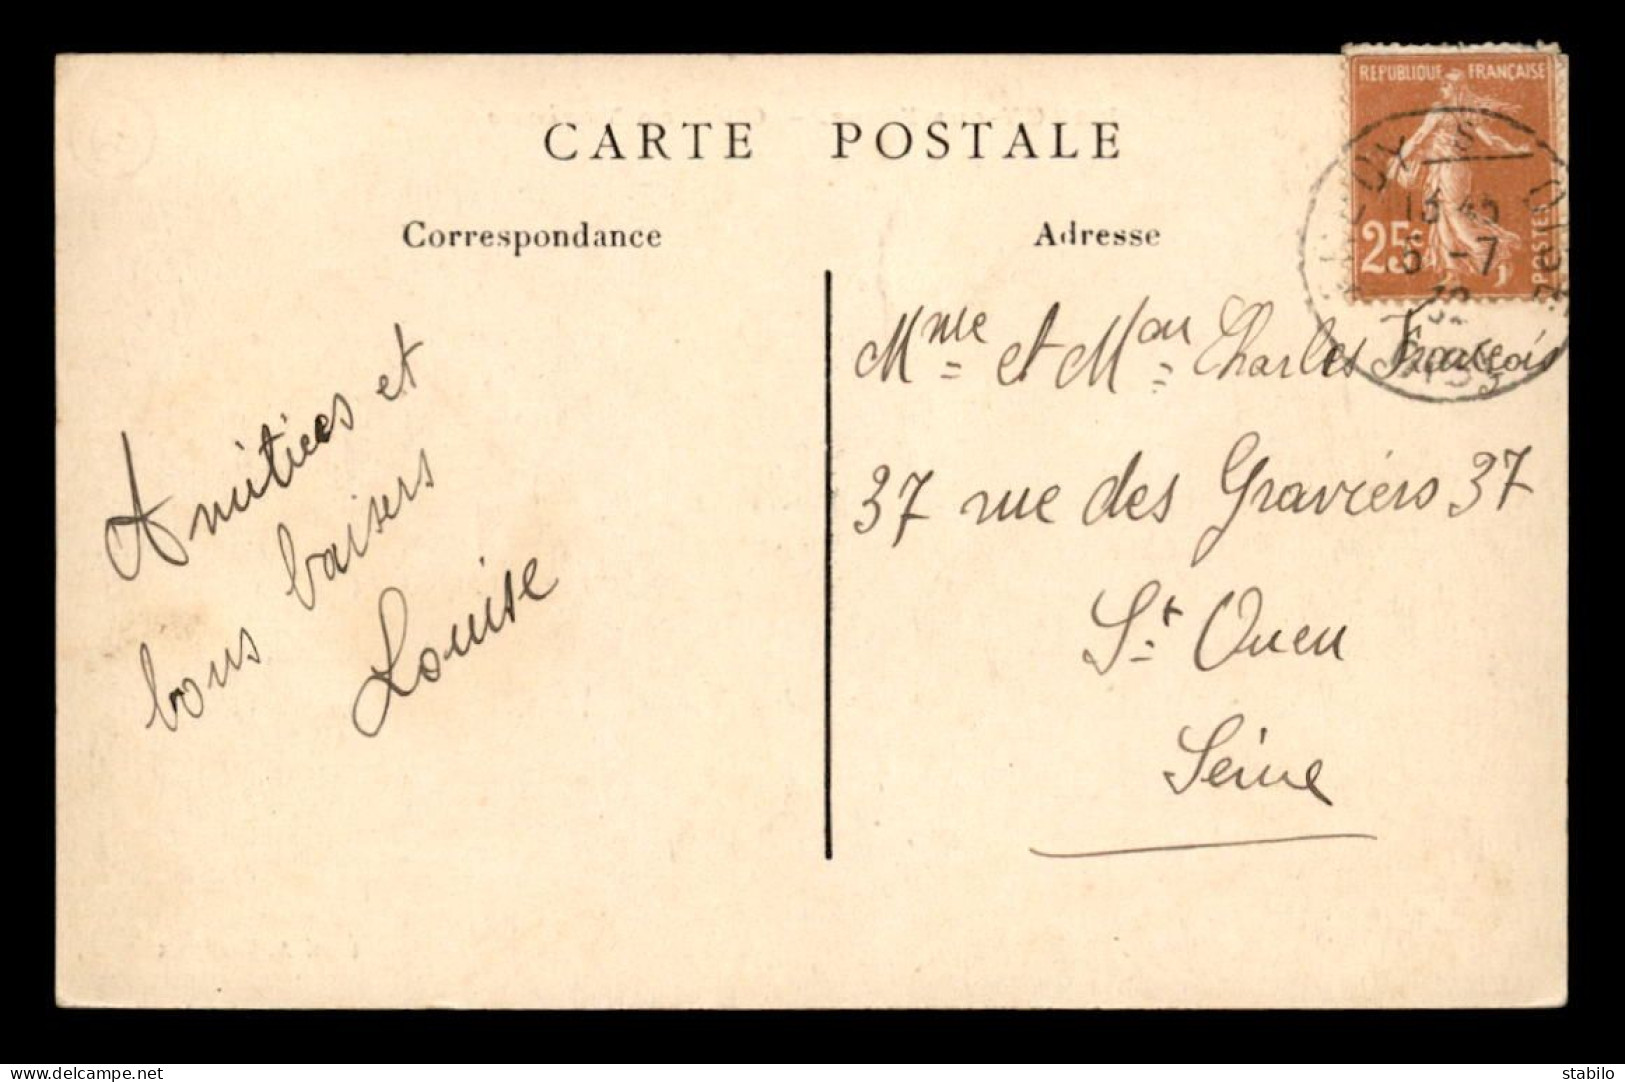 CARTE POSTALE
Correspondance
Adresse
REPUBLIQUE FRANÇAISE
25c
POSTES
13 45
5 -7
32
Amitiées et
bons baisers
Louise
Mme et Mon Charles François
37 rue des Graviers 37
St Ouen
Seine
delcampe.net
stabilo